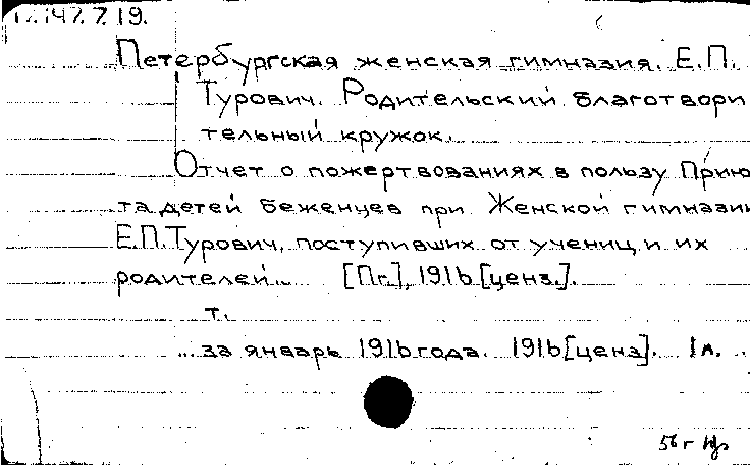 147.7.19.
Петербургская женская гимназия. Е.П.
Турович. Родительский благотвори
тельный кружок.
Отчет о пожертвованиях в пользу Прию
та детей беженцев при Женской гимназии
Е.П.Турович, поступивших от учениц и их
родителей... [Пг.], 1916 [ценз.].
т.
...за январь 1916 года. 1916 [ценз]. 1 л.
56 г